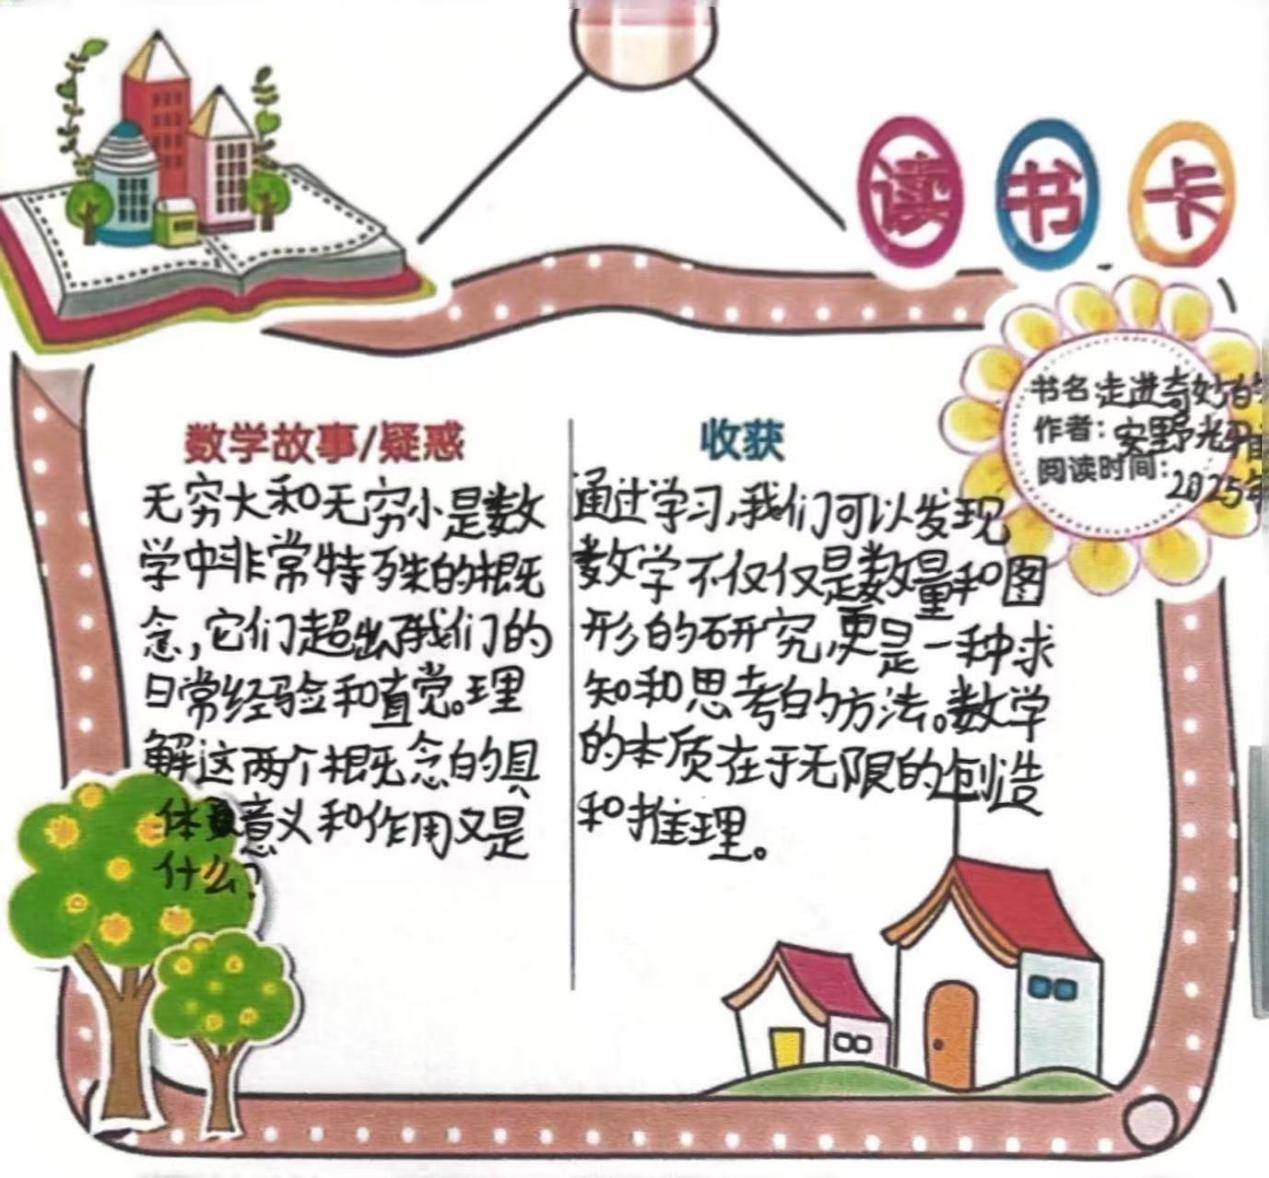 读书卡
书名:走进奇妙的
作者:安野光雅
阅读时间:2025年
数学故事/疑惑
无穷大和无穷小是数
学中非常特殊的概
念,它们超出了我们的
日常经验和直觉。理
解这两个概念的具
体意义和作用又是
什么?
收获
通过学习,我们可以发现
数学不仅仅是数量和图
形的研究,更是一种求
知和思考的方法。数学
的本质在于无限的创造
和推理。